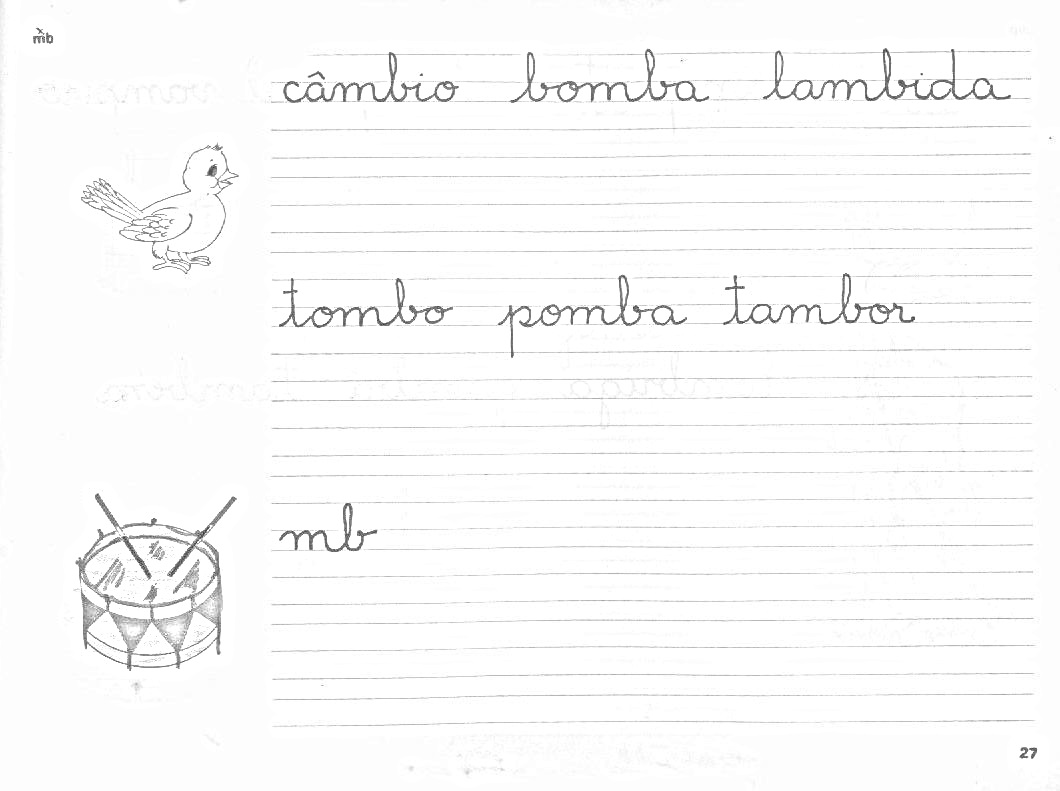 mb
câmbio bomba lambida
tombo pomba tambor
mb
27